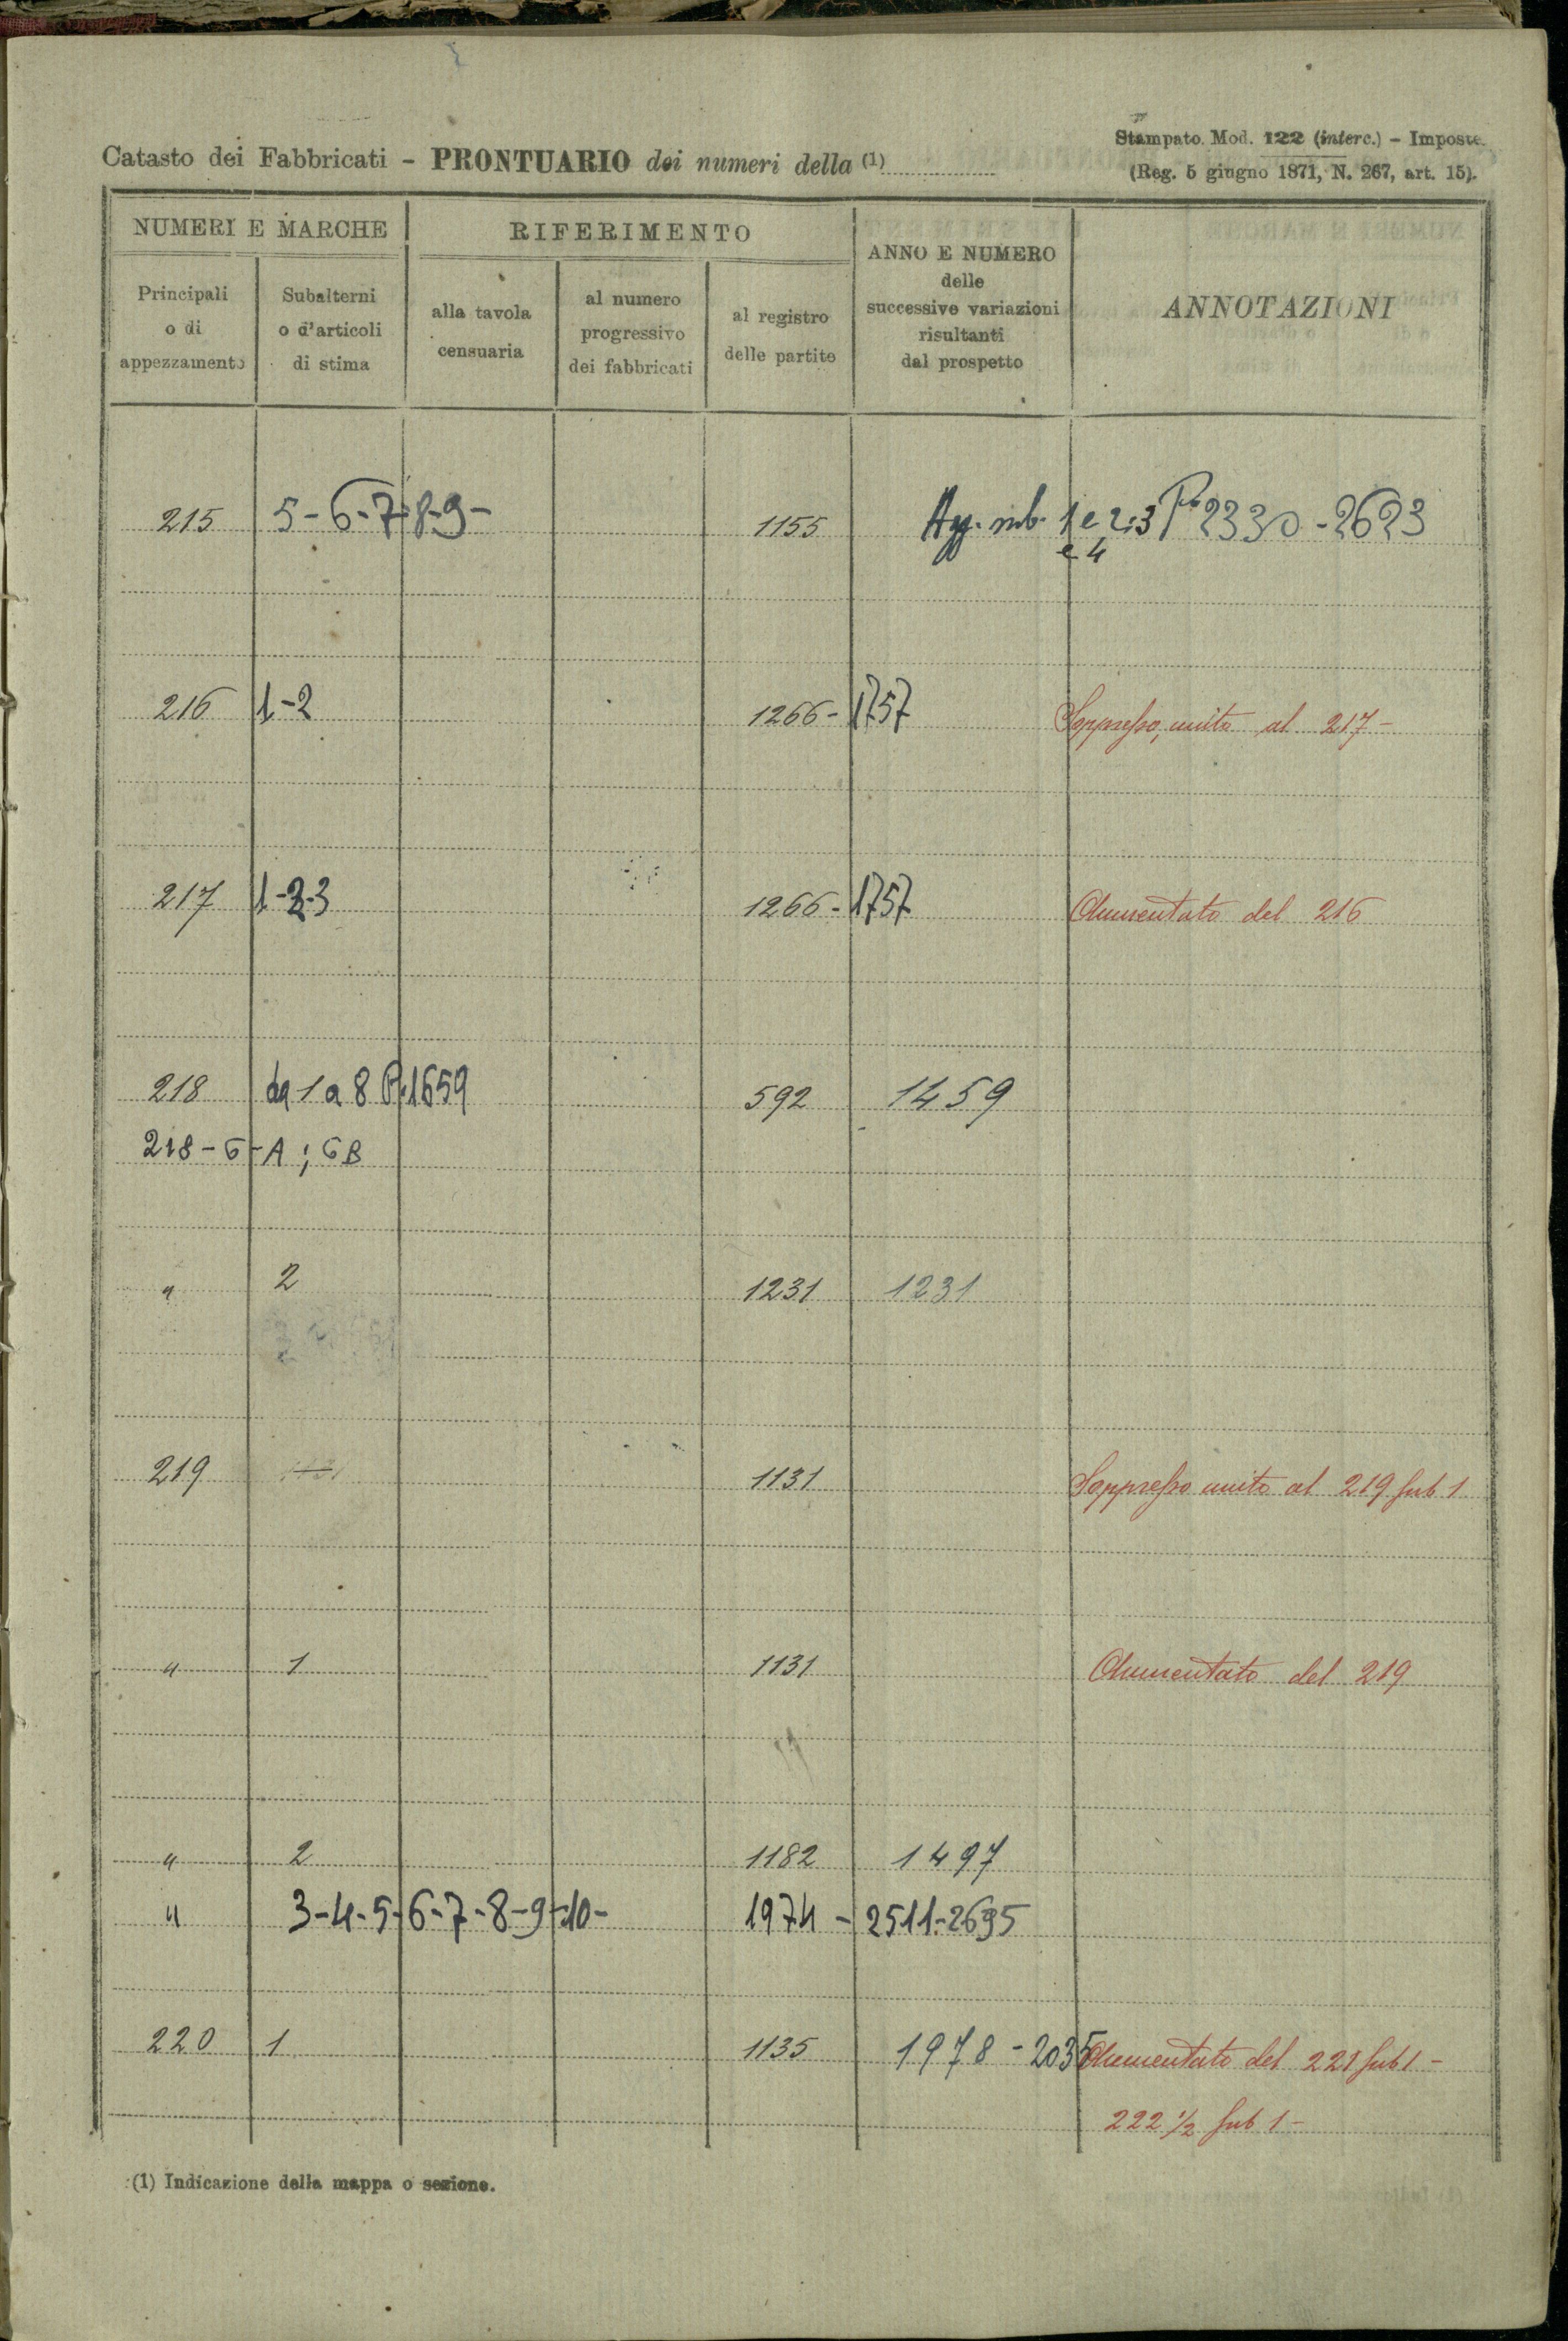 Stampato Mod. 122 (interc.) – Imposte.
Catasto dei Fabbricati – PRONTUARIO dei numeri della (1)
(Reg. 5 giugno 1871, N. 267, art. 15).
NUMERI E MARCHE
RIFERIMENTO
ANNO E NUMERO
delle
successive variazioni
risultanti
dal prospetto
ANNOTAZIONI
Principali
o di
appezzamento
Subalterni
o d'articoli
di stima
alla tavola
censuaria
al numero
progressivo
dei fabbricati
al registro
delle partite
215 5-6-7-8-9- 1155 Ag. sub. 1 e 2:3 P. 2330-2623
e 4
216 1-2 1266-1757 Soppresso, unito al 217-
217 1-2-3 1266-1757 Aumentato del 216
218 da 1 a 8 P. 1659 592 1459
218-6-A; 6B
" 2 1231 1231
219 1131 1131 Soppresso unito al 219 sub 1
" 1 1131 Aumentato del 219
" 2 1182 1497
" 3-4-5-6-7-8-9-10- 1974-2511-2695
220 1 1135 1978-2035 Aumentato del 221 sub 1-
222 1/2 sub 1-
(1) Indicazione della mappa o sezione.